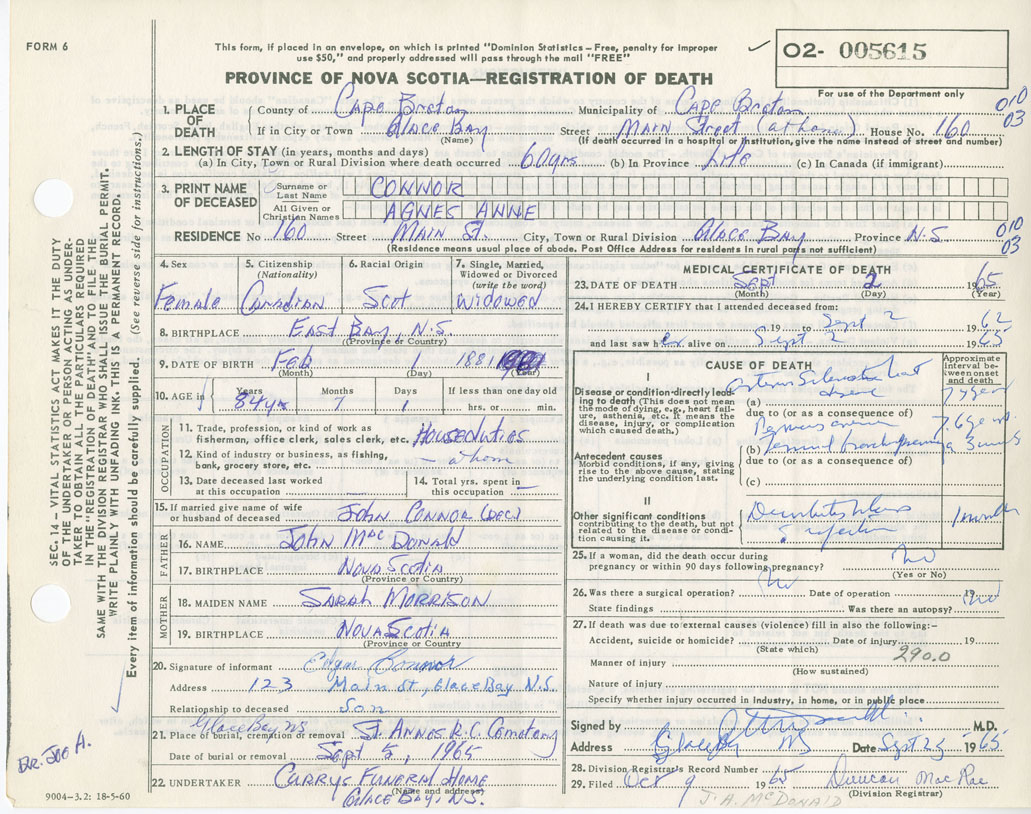 FORM 6
This form, if placed in an envelope, on which is printed "Dominion Statistics – Free, penalty for improper
use $50," and properly addressed will pass through the mail "FREE"
02- 005615
For use of the Department only
PROVINCE OF NOVA SCOTIA—REGISTRATION OF DEATH
1. PLACE OF DEATH
County of Cape Breton Municipality of Cape Breton 010
If in City or Town Glace Bay Street Main Street (at home) House No. 160 03
(Name) (If death occurred in a hospital or institution, give the name instead of street and number)
2. LENGTH OF STAY (in years, months and days)
(a) In City, Town or Rural Division where death occurred 60 yrs (b) In Province Life (c) In Canada (if immigrant)
3. PRINT NAME OF DECEASED
Surname or Last Name CONNOR
All Given or Christian Names AGNES ANNE
RESIDENCE No 160 Street Main St. City, Town or Rural Division Glace Bay Province N.S. 010 03
(Residence means usual place of abode. Post Office Address for residents in rural parts not sufficient)
4. Sex Female
5. Citizenship (Nationality) Canadian
6. Racial Origin Scot
7. Single, Married, Widowed or Divorced (write the word) Widowed
8. BIRTHPLACE East Bay, N.S.
(Province or Country)
9. DATE OF BIRTH Feb 1 1881
(Month) (Day) (Year)
10. AGE in Years Months Days If less than one day old
84 yrs 7 1 hrs. or min.
OCCUPATION
11. Trade, profession or kind of work as
fisherman, office clerk, sales clerk, etc. Houseduties
12. Kind of industry or business, as fishing,
bank, grocery store, etc. – at home
13. Date deceased last worked at this occupation
14. Total yrs. spent in this occupation –
15. If married give name of wife
or husband of deceased John Connor (Dec)
FATHER
16. NAME John MacDonald
17. BIRTHPLACE Nova Scotia
(Province or Country)
MOTHER
18. MAIDEN NAME Sarah Morrison
19. BIRTHPLACE Nova Scotia
(Province or Country)
20. Signature of informant Edgar Connor
Address 123 Main St, Glace Bay N.S.
Relationship to deceased Son
Glace Bay, NS
21. Place of burial, cremation or removal St. Annes R.C. Cemetary
Date of burial or removal Sept 5, 1965
22. UNDERTAKER Currys Funeral Home
(Name and address)
Glace Bay, N.S.
9004–3.2: 18-5-60
MEDICAL CERTIFICATE OF DEATH
23. DATE OF DEATH Sept 2 1965
(Month) (Day) (Year)
24. I HEREBY CERTIFY that I attended deceased from:
19 to Sept 2 1962
and last saw her alive on Sept 2 1965
CAUSE OF DEATH
Approximate Interval between onset and death
I
Disease or condition directly leading to death (This does not mean the mode of dying, e.g., heart failure, asthenia, etc. It means the disease, injury, or complication which caused death.)
(a) heart disease
due to (or as a consequence of)
(b)
Antecedent causes
Morbid conditions, if any, giving rise to the above cause, stating the underlying condition last.
due to (or as a consequence of)
(c)
II
Other significant conditions contributing to the death, but not related to the disease or condition causing it.
? infection
1 month
25. If a woman, did the death occur during
pregnancy or within 90 days following pregnancy? No
(Yes or No)
26. Was there a surgical operation? No Date of operation 19
State findings Was there an autopsy? No
27. If death was due to external causes (violence) fill in also the following:–
Accident, suicide or homicide? Date of injury 19
(State which) 290.0
Manner of injury
(How sustained)
Nature of injury
Specify whether injury occurred in industry, in home, or in public place
Signed by M.D.
Address Glace Bay NS Date Sept 25 1965
28. Division Registrar's Record Number
29. Filed Oct 9 1965 Duncan MacRae
(Division Registrar)
J. A. McDonald
SEC. 14 – VITAL STATISTICS ACT MAKES IT THE DUTY
OF THE UNDERTAKER OR PERSON ACTING AS UNDER-
TAKER TO OBTAIN ALL THE PARTICULARS REQUIRED
IN THE "REGISTRATION OF DEATH" AND TO FILE THE
SAME WITH THE DIVISION REGISTRAR WHO SHALL ISSUE THE BURIAL PERMIT.
WRITE PLAINLY WITH UNFADING INK. THIS IS A PERMANENT RECORD.
Every item of information should be carefully supplied. (See reverse side for instructions.)
Br. Joo A.